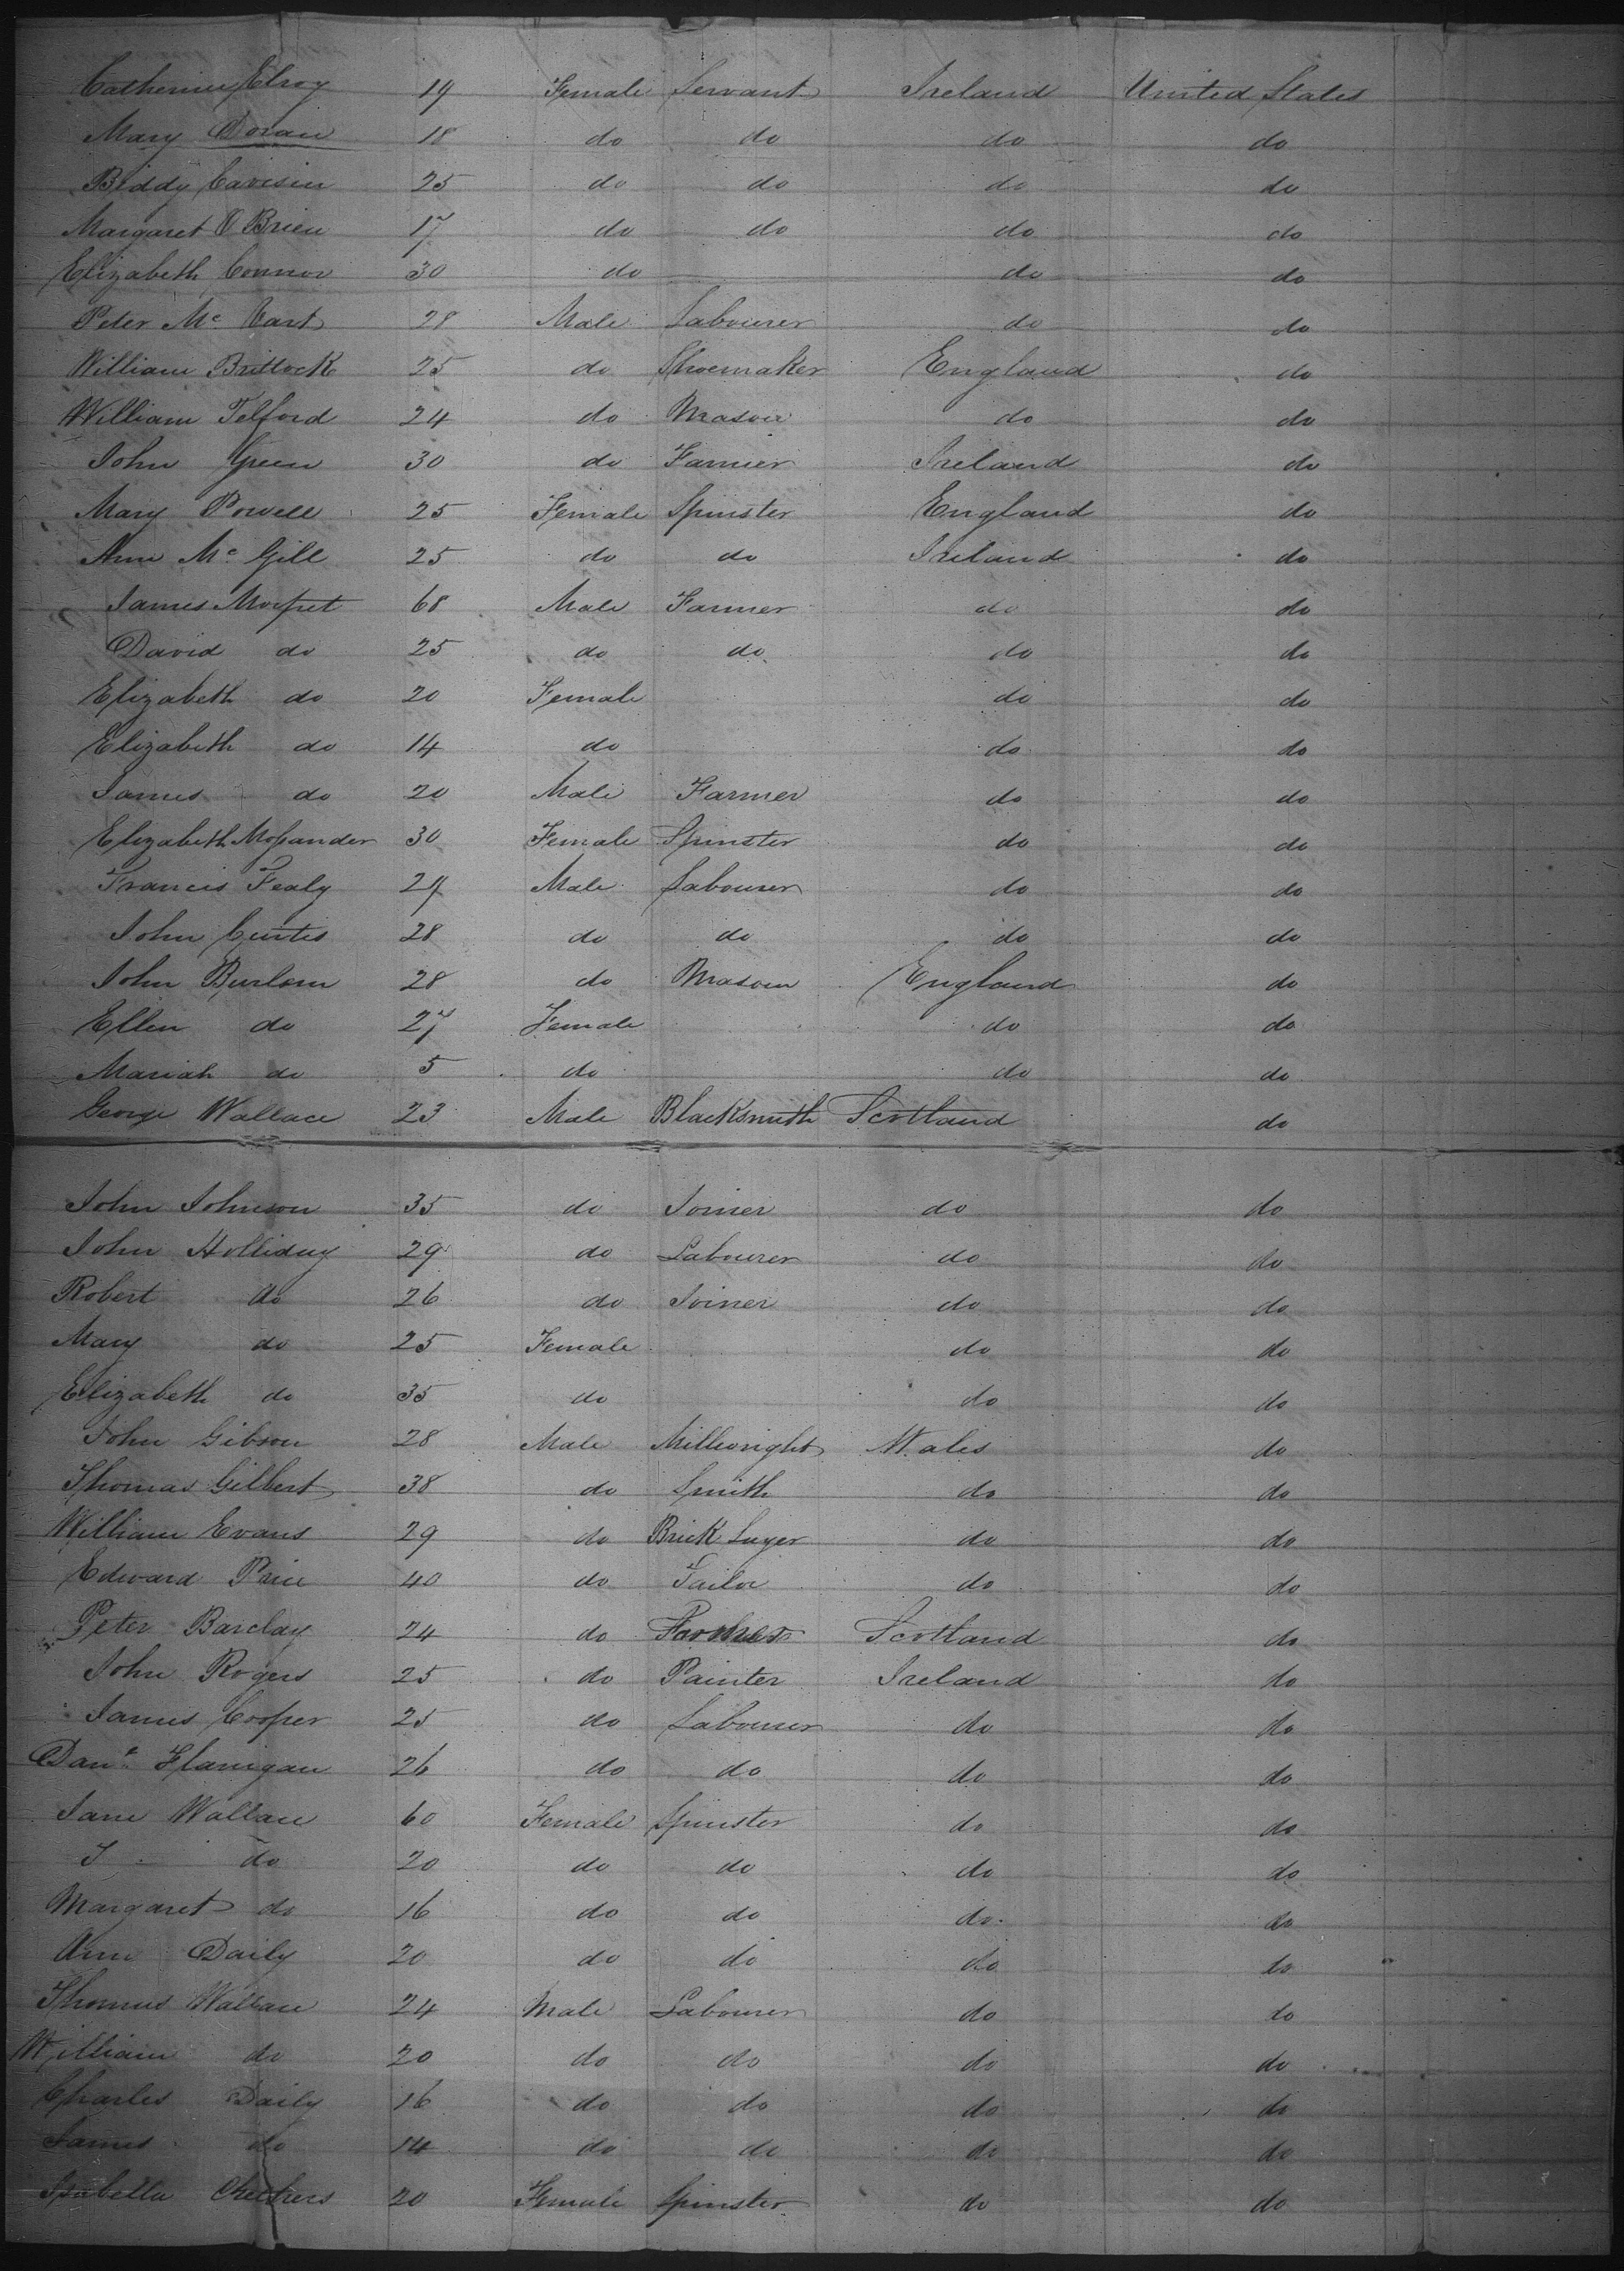 Catherine Elroy 19 Female Servant Ireland United States
Mary Doran 18 do do do do
Biddy 25 do do do do
Margaret O Brien 17 do do do do
Elizabeth Connor 30 do do do
Peter Mc Cart 28 Male Labourer do do
William Brittock 25 do Shoemaker England do
William Telford 24 do Mason do do
John Green 30 do Farmer Ireland do
Mary Powell 25 Female Spinster England do
Ann Mc Gill 25 do do Ireland do
James 68 Male Farmer do do
David do 25 do do do do
Elizabeth do 20 Female do do
Elizabeth do 14 do do do
James do 20 Male Farmer do do
Elizabeth 30 Female Spinster do do
Francis Fealy 29 Male Labourer do do
John Curtis 28 do do do do
John Burlom 28 do Mason England do
Ellen do 27 Female do do
Mariah do 5 do do do
George Wallace 23 Male Blacksmith Scotland do
John Johnson 35 do Joiner do do
John Holliday 29 do Labourer do do
Robert do 26 do Joiner do do
Mary do 25 Female do do
Elizabeth do 35 do do do
John Gibson 28 Male Millwright Wales do
Thomas Gilbert 38 do Smith do do
William Evans 29 do Brick Layer do do
Edward Price 40 do Tailor do do
Peter Barclay 24 do Scotland do
John Rogers 25 do Painter Ireland do
James Cooper 25 do Labourer do do
Danl Flanigan 26 do do do do
Jane Wallace 60 Female Spinster do do
J do 20 do do do do
Margaret do 16 do do do do
Ann Daily 20 do do do do
Thomas Wallace 24 Male Labourer do do
William do 20 do do do do
Charles Daily 16 do do do do
James do 14 do do do do
Isabella 20 Female Spinster do do